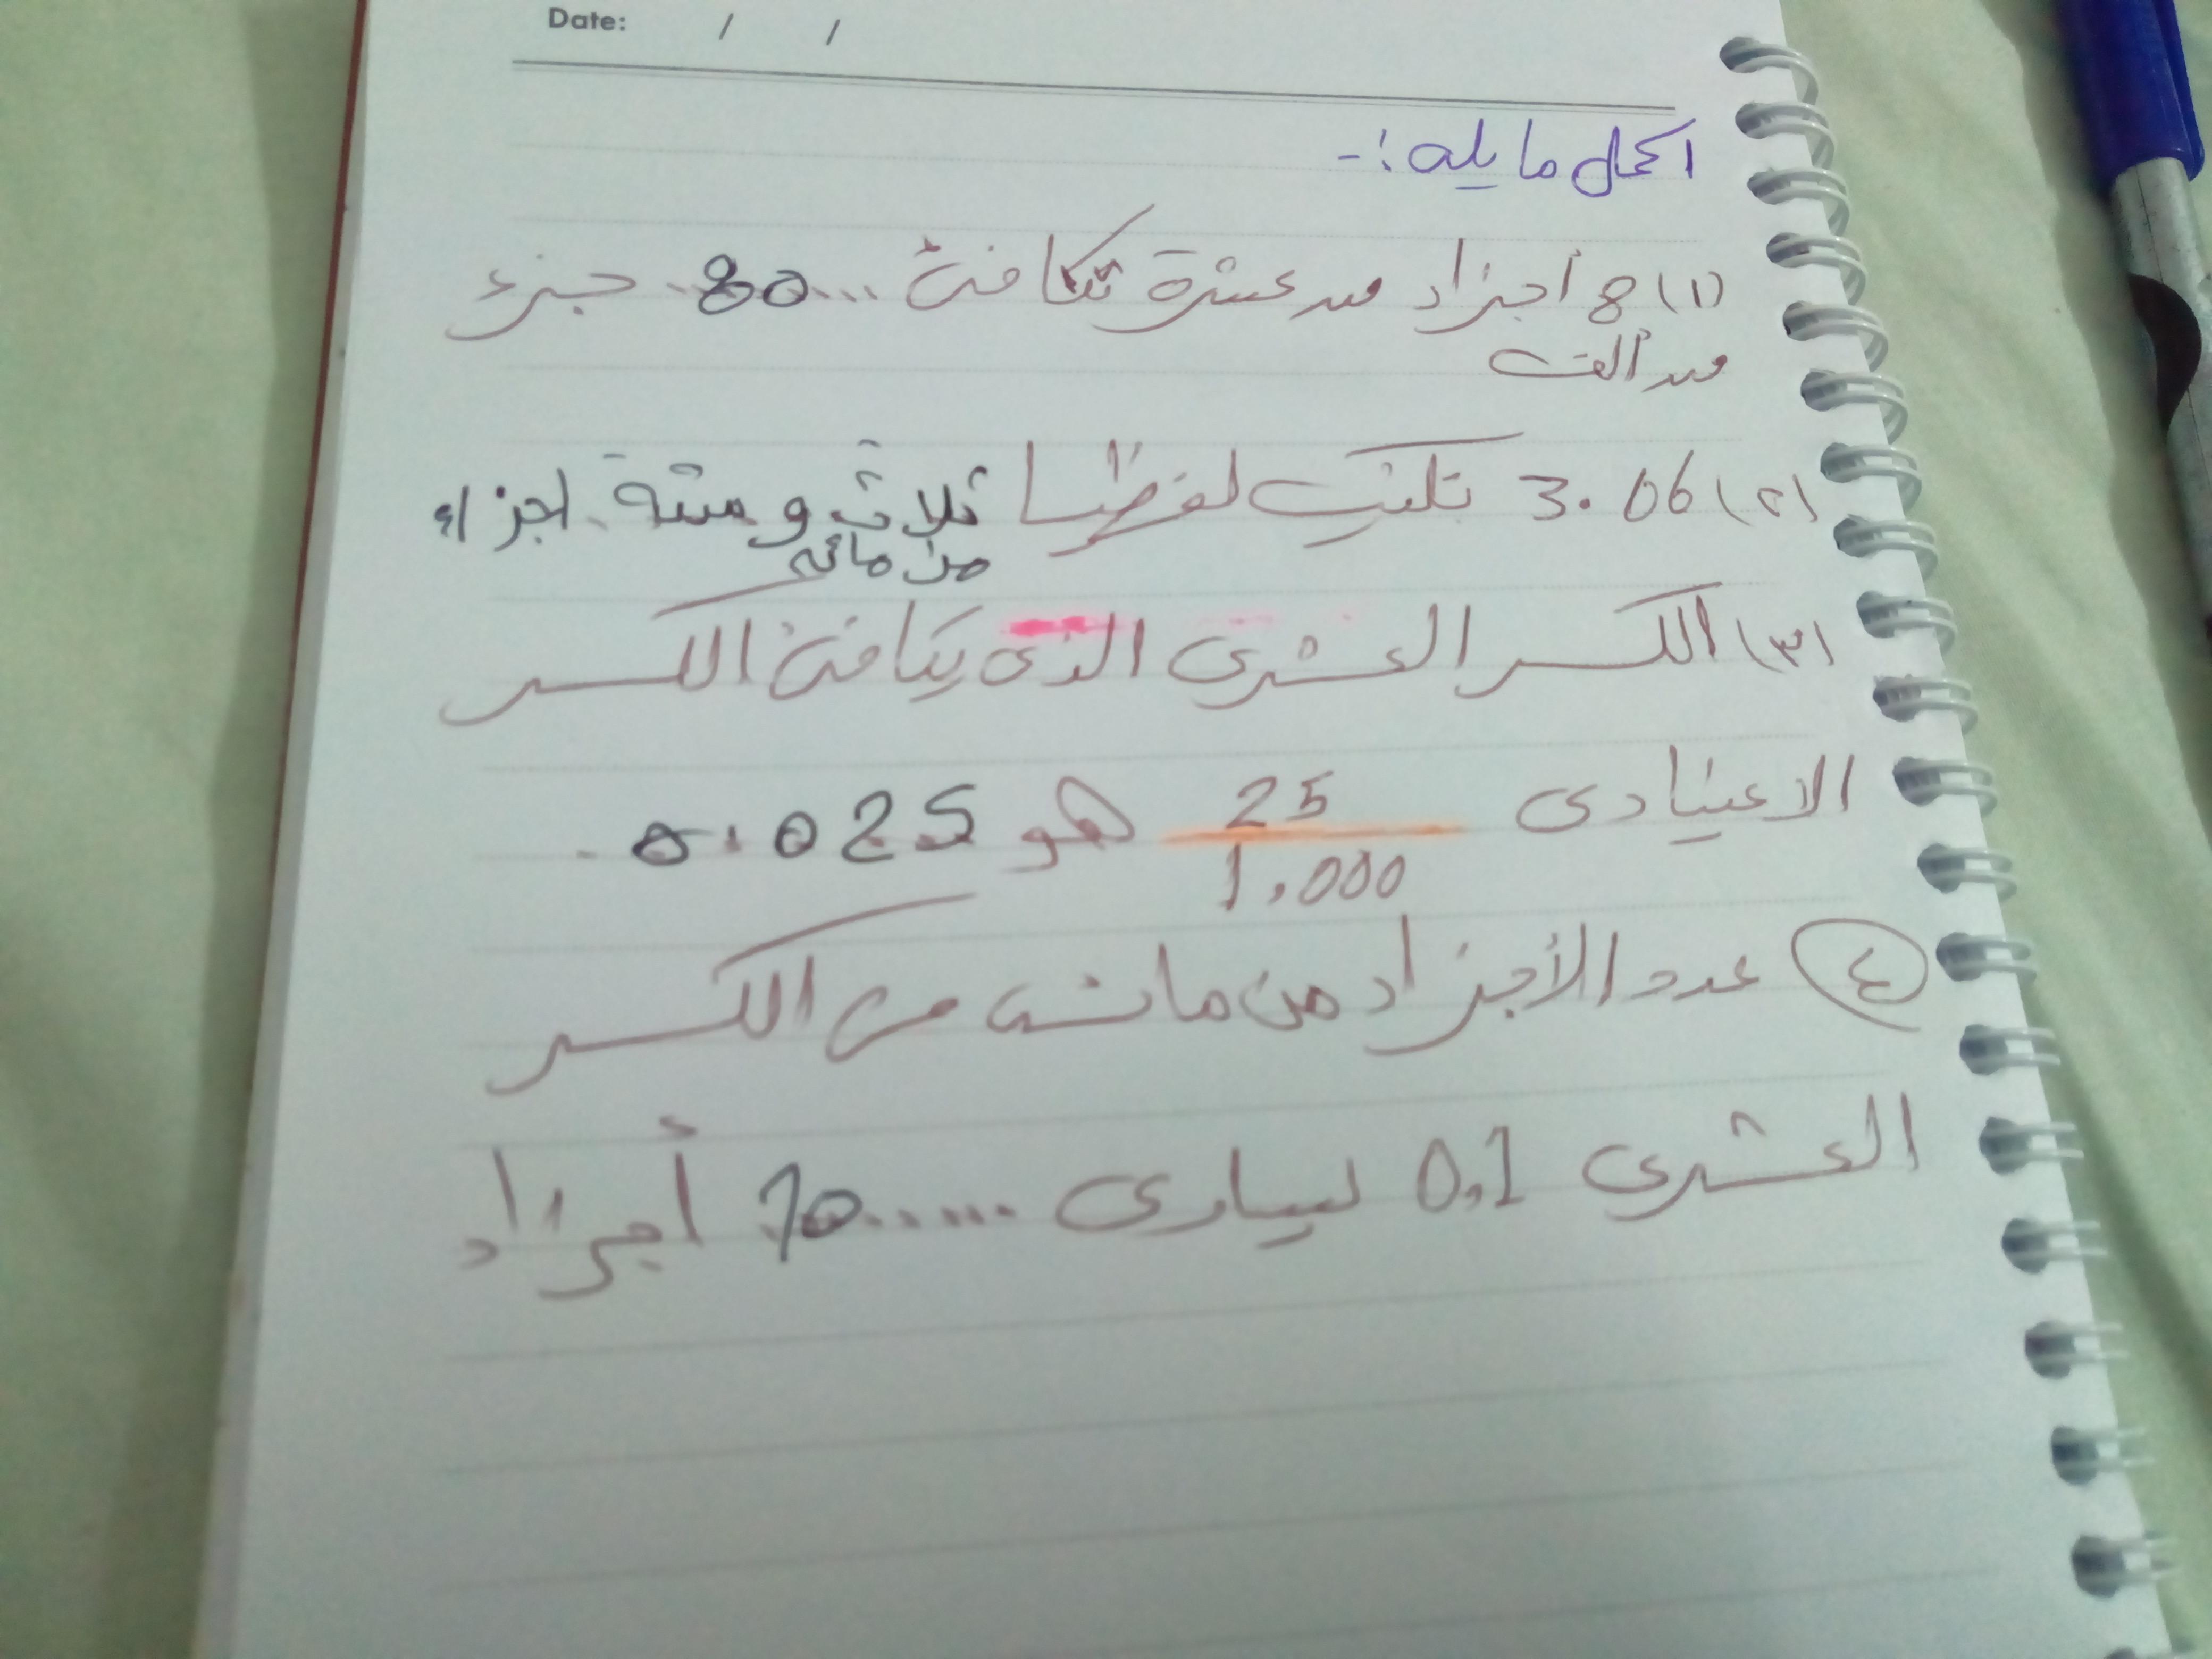 Date: / /
اكمل ما يله :-
(١) 8 أجزاء من عشرة تكافئ ...80... جزء
من ألف
(٢) 3.06 تكتب لفظيا ثلاث و ستة اجزاء
من مائه
(٣) الكسر العشرى الذى يكافئ الكسر
الاعتيادى 25/1.000 هو 0.025 .
(٤) عدد الأجزاء من مائه من الكسر
العشرى 0.1 يساوى ......10 أجزاء